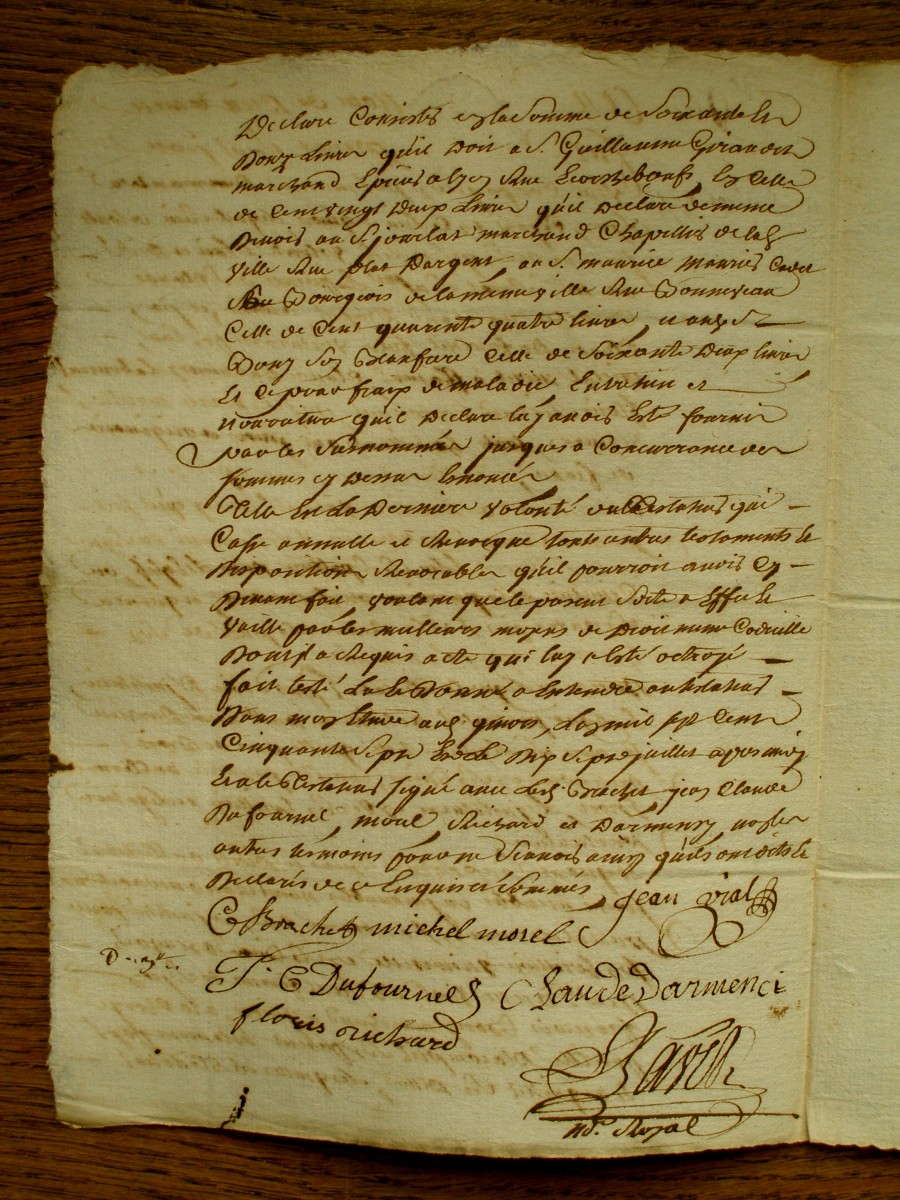 Declare Consister en la Somme de Soixante Et
Douze Livres qu'il Doit a Sr Guillaume
marchand Epicier a lyon Rue Ecorcheboeuf, Et Celle
de Cent vingt Deux Livres qu'il Declare de meme
Devoir au Sr jourlat marchand Chapellier de lad
ville Rue plat Dargent, au Sr maurice
Bourgeois de la meme ville Rue Bonneveau
Celle de Cent quarente quatre livres, et au Sr
Son Celle de Soixante Deux livres
Et Ce pour fraix de maladie Entretien et
nourriture qu'il Declare luy avoir Esté fourni
par les Susnommés jusques a Concurrance des
sommes cy Dessus Enoncées
Telle Est La Derniere volonté dud testateur qui
Casse annulle et Revocque touts autres testaments Et
Dispositions Revocables qu'il pourroit avoir Cy
Devant fait, voulant que le present Sorte a Effet Et
Vaille par les meilleurs moyens de Droit meme Codicille
Dont Il a Requis acte qui luy a Esté octroyé
fait testé Lu Et Donné a Entendre au testateur
Dans mon Etude aud , L'an mil sept Cent
Cinquante Sept Et Le Dix Sept juillet apres midy
Et a le Testateur signé avec Led Brachet jean Claude
Dufournel, morel, Richard et Darmency, non les
autres temoins pour ne Scavoir ainsy qu'ils ont dit Et
Declaré de ce Enquis et Sommés jean vial
C Brachet michel morel
J. C Dufournel Claude Darmenci
floris richard
Nore Royal